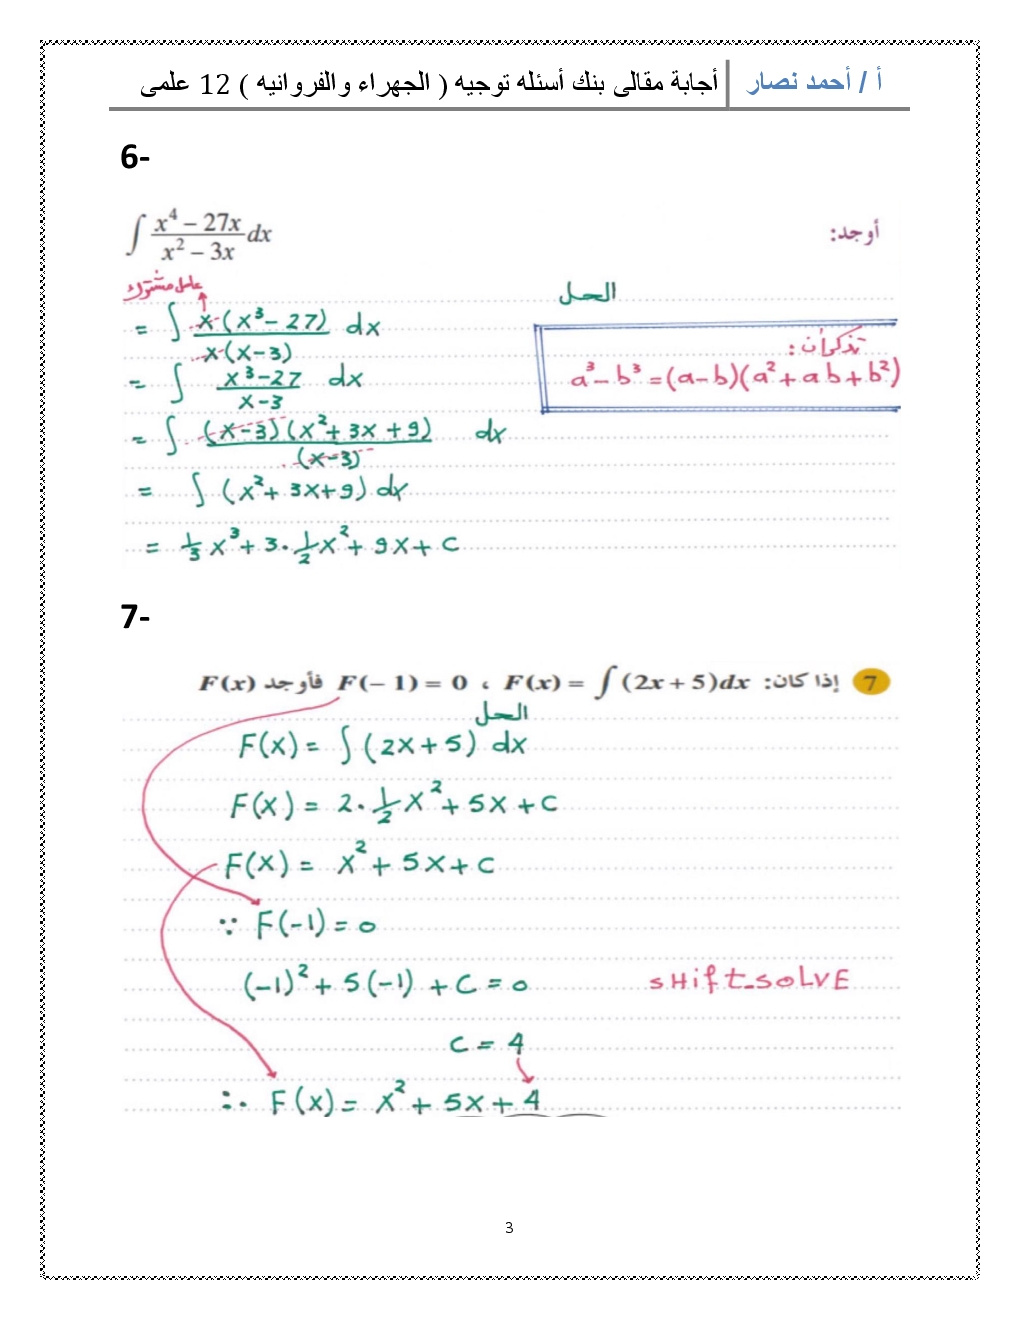 أ / أحمد نصار أجابة مقالى بنك أسئله توجيه ( الجهراء والفروانيه ) 12 علمى
6-
أوجد: ∫ (x⁴ − 27x)/(x² − 3x) dx
عامل مشترك
الحل
= ∫ x(x³ − 27)/x(x − 3) dx
تذكر أن:
a³ − b³ = (a − b)(a² + ab + b²)
= ∫ (x³ − 27)/(x − 3) dx
= ∫ (x − 3)(x² + 3x + 9)/(x − 3) dx
= ∫ (x² + 3x + 9) dx
= 1/3 x³ + 3 · 1/2 x² + 9x + C
7-
7 إذا كان: F(x) = ∫ (2x + 5)dx ، F(− 1) = 0 فأوجد F(x)
الحل
F(x) = ∫ (2x + 5) dx
F(x) = 2 · 1/2 x² + 5x + C
F(x) = x² + 5x + C
∵ F(−1) = 0
(−1)² + 5(−1) + C = 0 SHift_SOLVE
C = 4
∴ F(x) = x² + 5x + 4
3